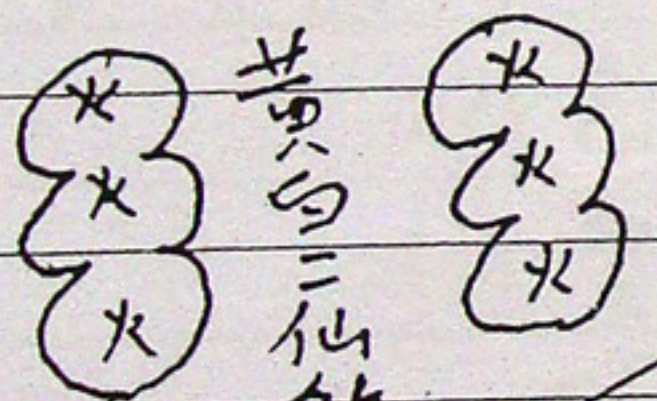 火
火
火
黄二仙
火
火
火